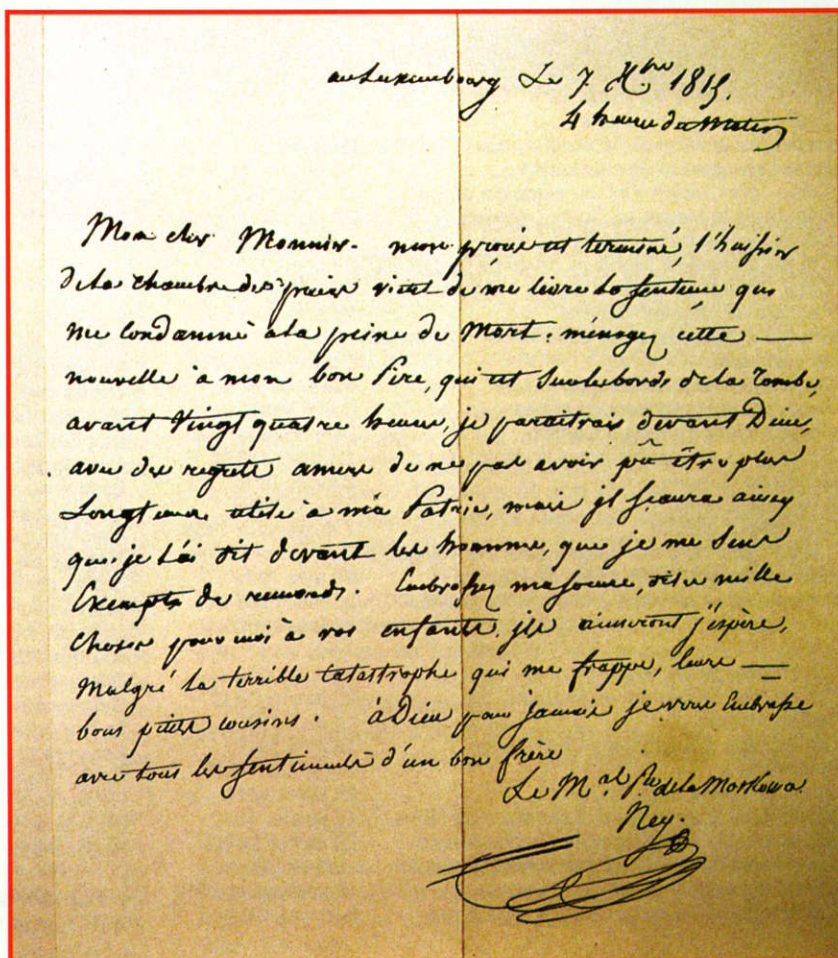 au Luxembourg Le 7. Xbre 1815.
4 heure du Matin
Mon cher Monnier. mon procès est terminé, l'huissier
de la chambre des pairs vient de me lire la sentence qui
me Condamne à la peine de Mort. ménagez cette —
nouvelle à mon bon Père, qui est sur le bords de la Tombe,
avant Vingt quatre heures, je paraitrais devant Dieu,
avec des regrets amers de ne pas avoir pû être plus
Longtems utile à ma Patrie, mais il scaura ainsy
que je l'ai dit devant les hommes, que je me sens
Exempts de remords. Embrassez ma soeur, dites mille
Choses pour moi à vos enfants. ils aimeront j'espère,
Malgré la terrible Catastrophe qui me frappe, leurs —
bons petits cousins. à Dieu pour jamais je vous Embrasse
avec tous les sentiments d'un bon frère
Le Mal Pce de la Moskowa
Ney.